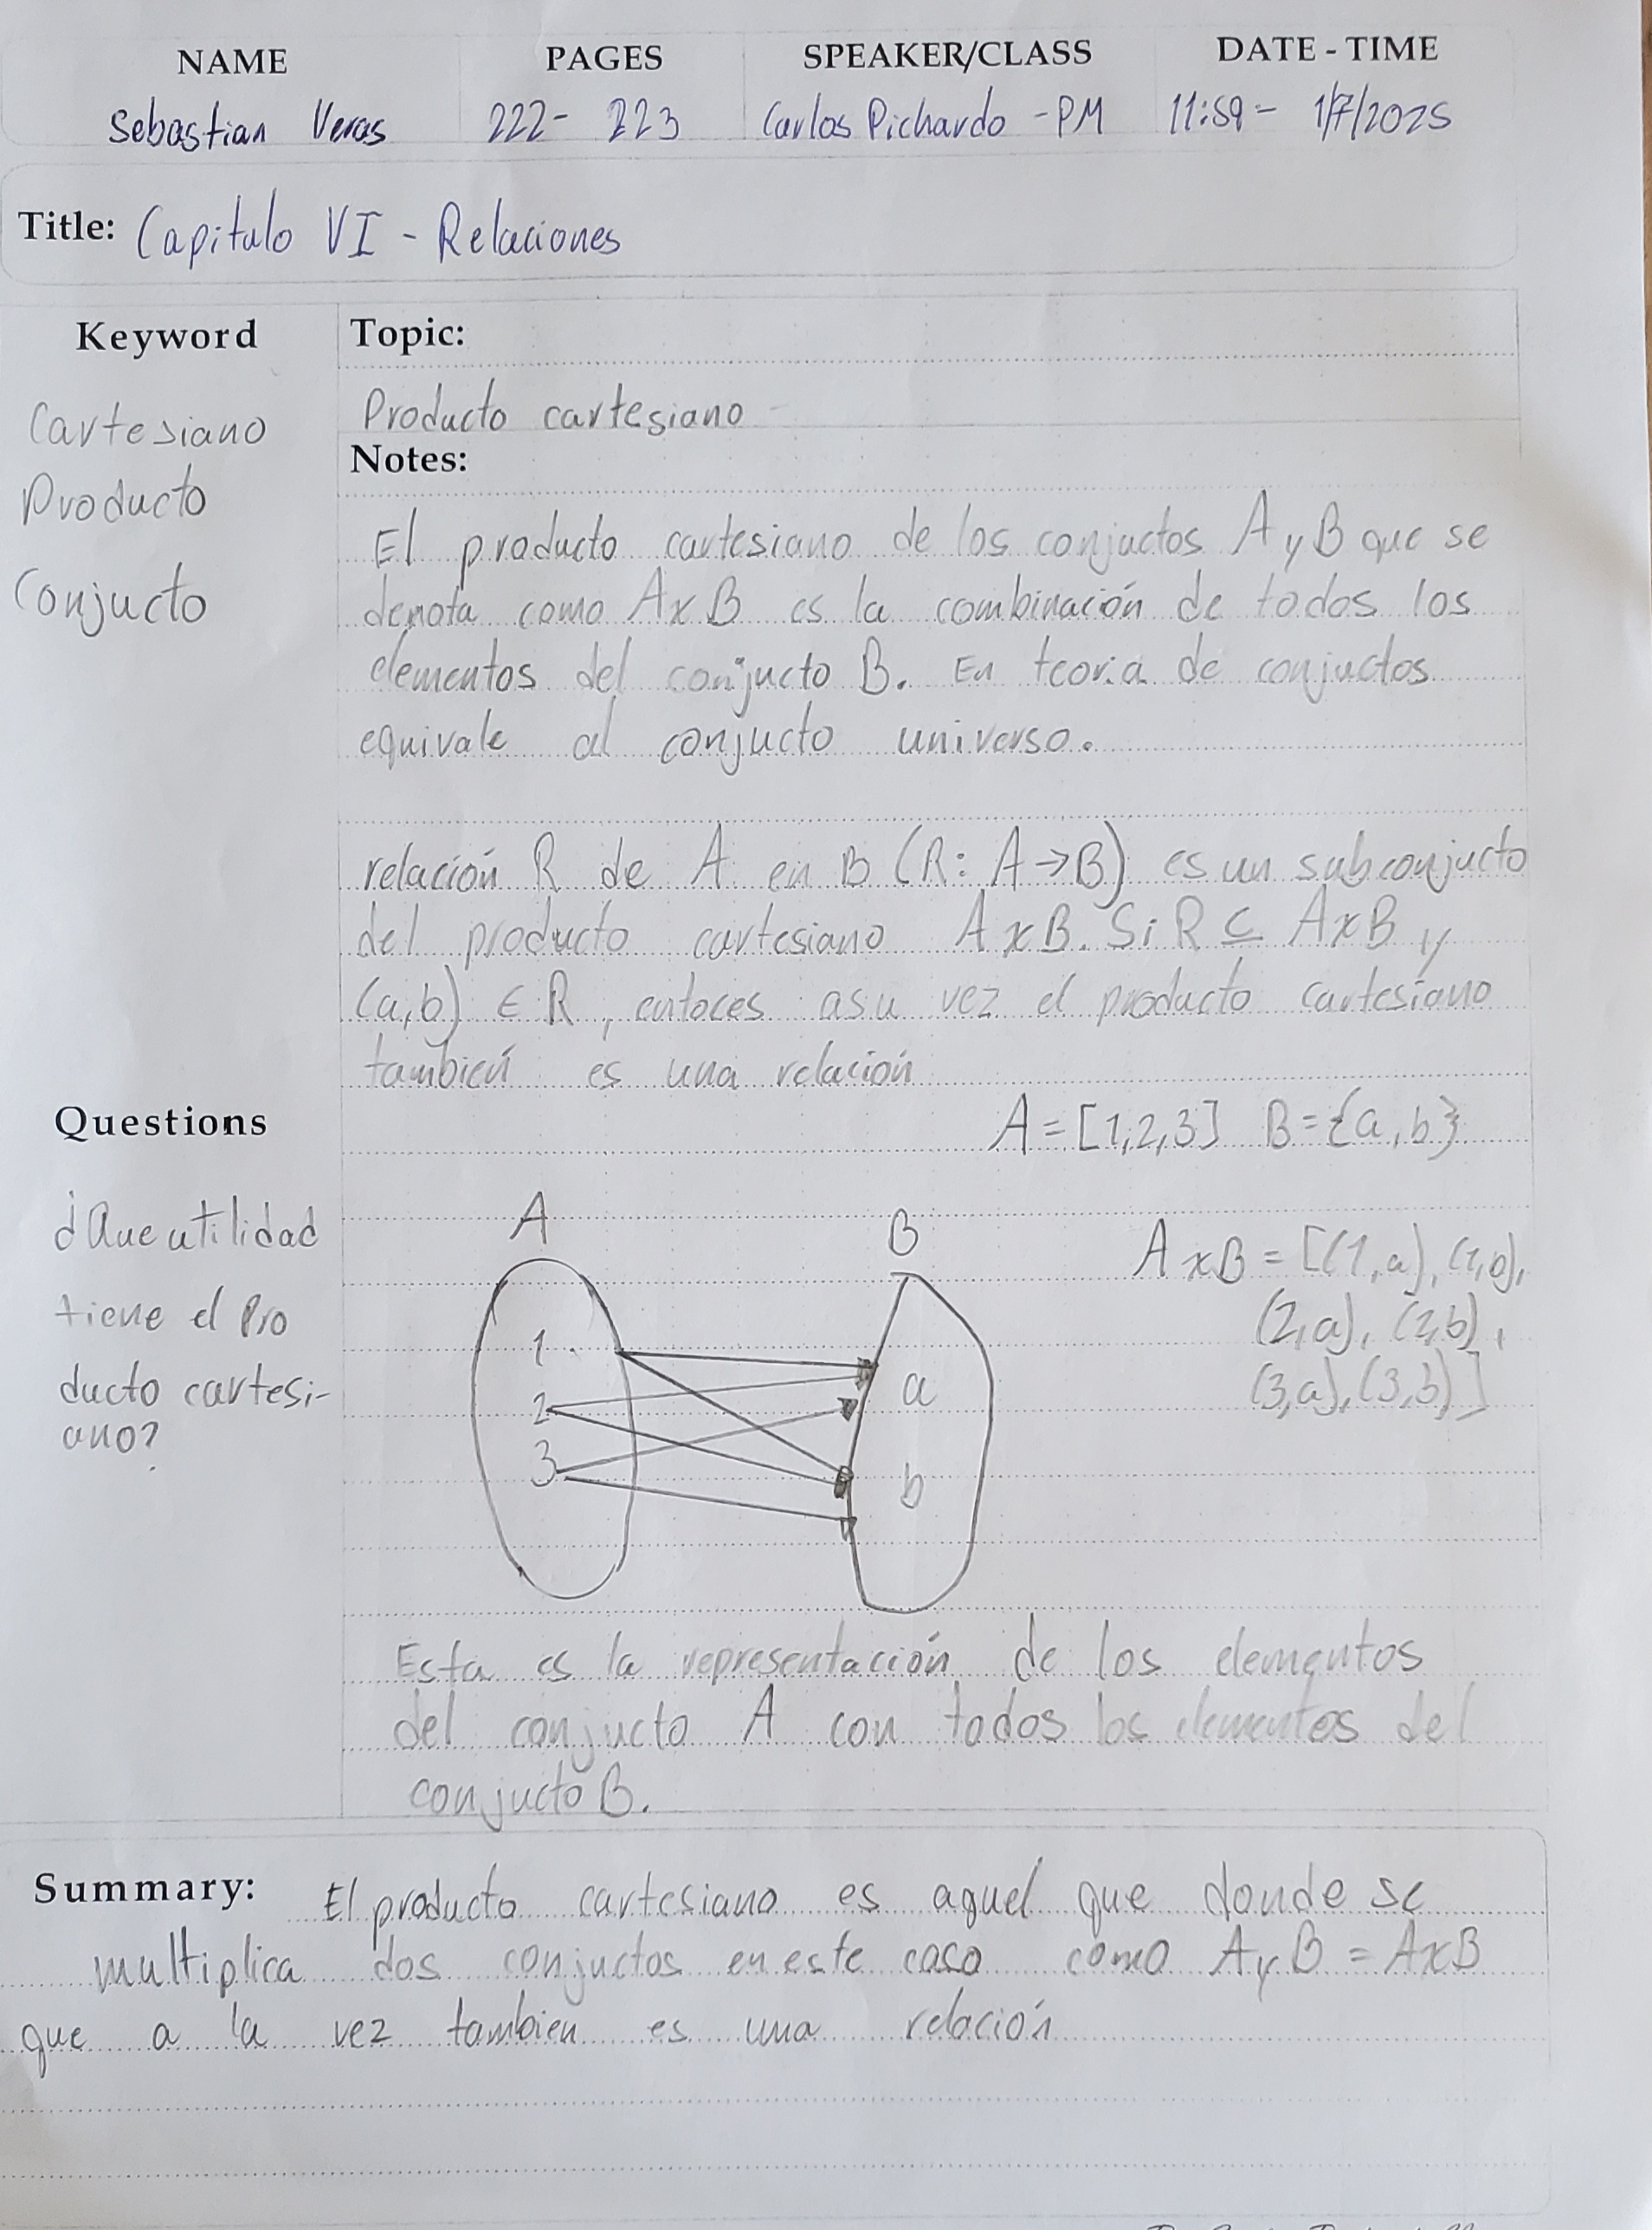 NAME PAGES SPEAKER/CLASS DATE - TIME
Sebastian Veras 222- 223 Carlos Pichardo - PM 11:59 - 1/7/2025
Title: Capitulo VI - Relaciones
Keyword
Cartesiano
Producto
Conjucto
Topic:
Producto cartesiano
Notes:
El producto cartesiano de los conjuctos A y B que se
denota como AxB es la combinación de todos los
elementos del conjucto B. En teoria de conjuctos
equivale al conjucto universo.
relación R de A en B (R: A→B) es un subconjucto
del producto cartesiano AxB. Si R ⊆ AxB y
(a,b) ∈ R, entoces asu vez el producto cartesiano
también es una relación
A = [1,2,3] B = {a,b}
Questions
¿Que utilidad
tiene el Pro
ducto cartesi-
ano?
A B
1
2
3
a
b
AxB = [(1,a), (1,b),
(2,a), (2,b),
(3,a), (3,b)]
Esta es la representación de los elementos
del conjucto A con todos los elementos del
conjucto B.
Summary: El producto cartesiano es aquel que donde se
multiplica dos conjuctos en este caso como A y B = AxB
que a la vez tambien es una relación